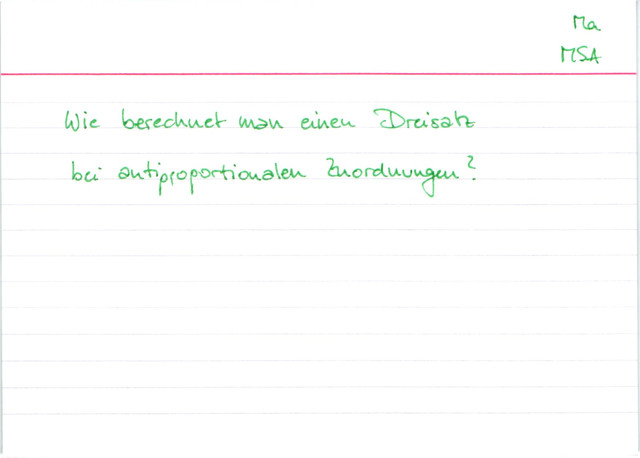 Ma
MSA
Wie berechnet man einen Dreisatz
bei antiproportionalen Zuordnungen?